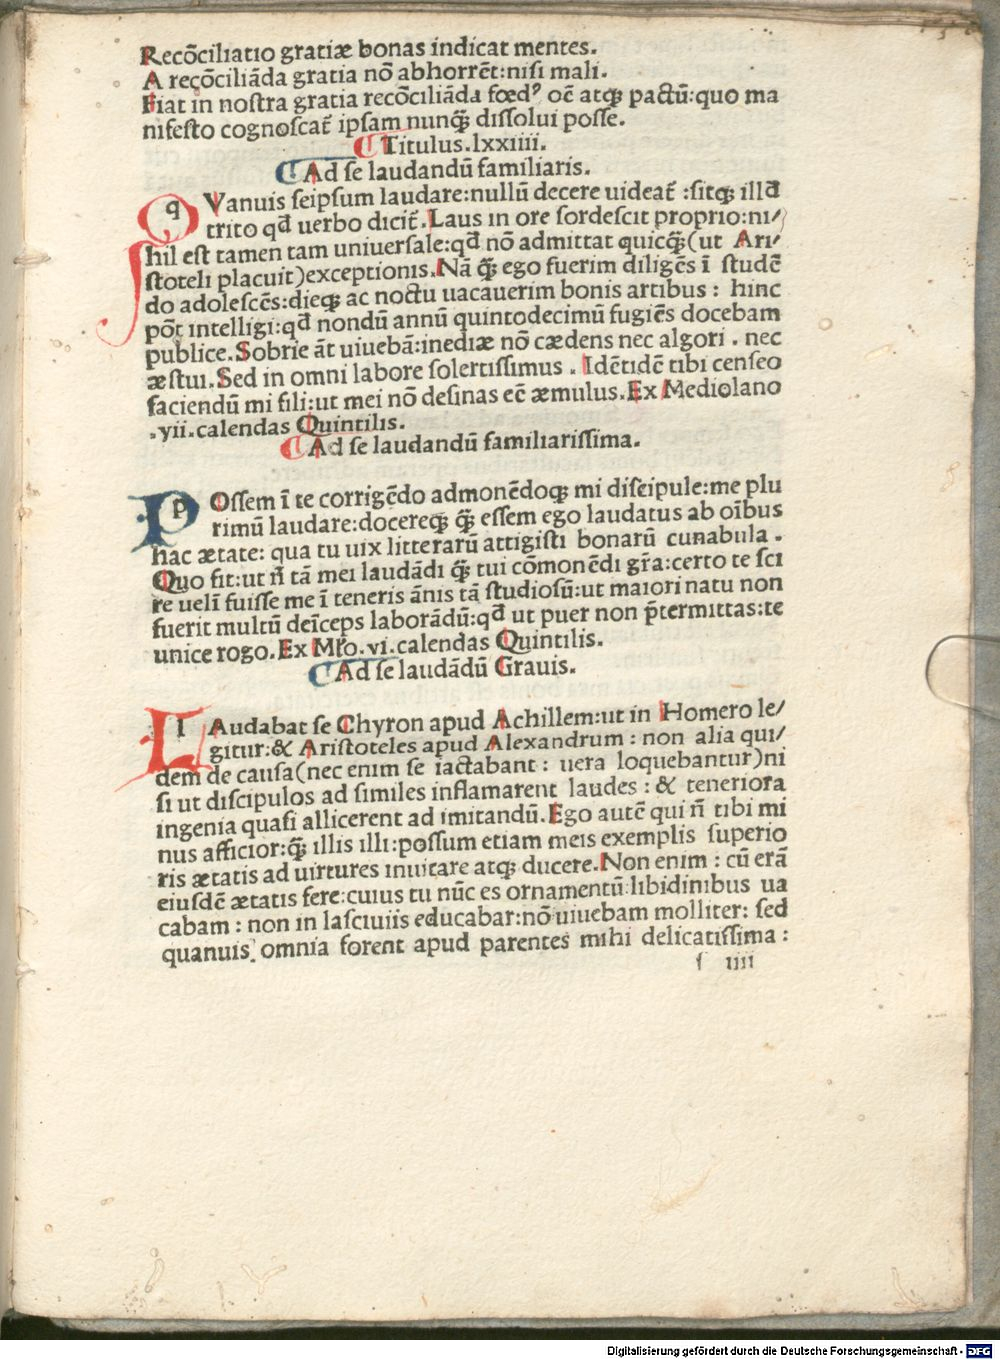 Recõciliatio gratiæ bonas indicat mentes.
A recõciliãda gratia nõ abhorrẽt:nisi mali.
Fiat in nostra gratia recõciliãda fœdꝰ oẽ atqꝫ pactũ:quo ma
nifesto cognoscat̃ ipsam nunq̃ dissolui posse.
¶Titulus.lxxiiii.
¶Ad se laudandũ familiaris.
qVanuis seipsum laudare:nullũ decere uideat̃ :sitqꝫ illđ
trito qđ uerbo dicit̃.Laus in ore sordescit proprio:ni/
hil est tamen tam uniuersale:qđ nõ admittat quicq̃(ut Ari/
stoteli placuit)exceptionis.Nã q̃ ego fuerim diligẽs ĩ studẽ
do adolescẽs:dieqꝫ ac noctu uacauerim bonis artibus : hinc
põt intelligi:qđ nondũ annũ quintodecimũ fugiẽs docebam
publice.Sobrie ãt uiuebã:inediæ nõ cædens nec algori . nec
æstui.Sed in omni labore solertissimus . Idẽtidẽ tibi censeo
faciendũ mi fili:ut mei nõ desinas eẽ æmulus.Ex Mediolano
.yii.calendas Quintilis.
¶Ad se laudandũ familiarissima.
pOssem ĩ te corrigẽdo admonẽdoqꝫ mi discipule:me plu
rimũ laudare:docereqꝫ q̃ essem ego laudatus ab oĩbus
hac ætate: qua tu uix litterarũ attigisti bonarũ cunabula .
Quo fit:ut ñ tã mei laudãdi q̃ tui cõmonẽdi gr̃a:certo te sci
re uelĩ fuisse me ĩ teneris ãnis tã studiosũ:ut maiori natu non
fuerit multũ deĩceps laborãdũ:qđ ut puer non p̃termittas:te
unice rogo.Ex Mr̃o.vi.calendas Quintilis.
¶Ad se laudãdũ Grauis.
lAudabat se Chyron apud Achillem:ut in Homero le/
gitur:& Aristoteles apud Alexandrum : non alia qui/
dem de causa(nec enim se iactabant : uera loquebantur)ni
si ut discipulos ad similes inflamarent laudes : & teneriora
ingenia quasi allicerent ad imitandũ.Ego autẽ qui ñ tibi mi
nus afficior:q̃ illis illi:possum etiam meis exemplis superio
ris ætatis ad uirtutes inuitare atqꝫ ducere.Non enim : cũ erã
eiusdẽ ætatis fere:cuius tu nũc es ornamentũ:libidinibus ua
cabam : non in lasciuiis educabar:nõ uiuebam molliter: sed
quanuis omnia forent apud parentes mihi delicatissima :
f iiii
Digitalisierung gefördert durch die Deutsche Forschungsgemeinschaft - DFG